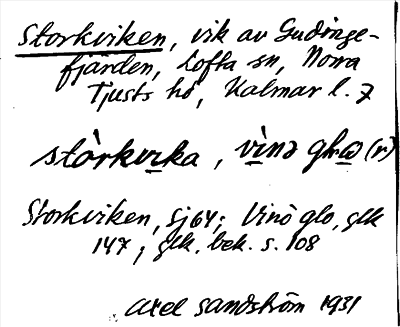 Storkviken, vik av Gudinge-
fjärden, Lofta sn, Norra
Tjusts hd, Kalmar l. 7
stòrkvika, vìnə
Storkviken, Sj 64; Vinö glo, glk
147, glk. bek. s. 108
Axel Sandström 1931